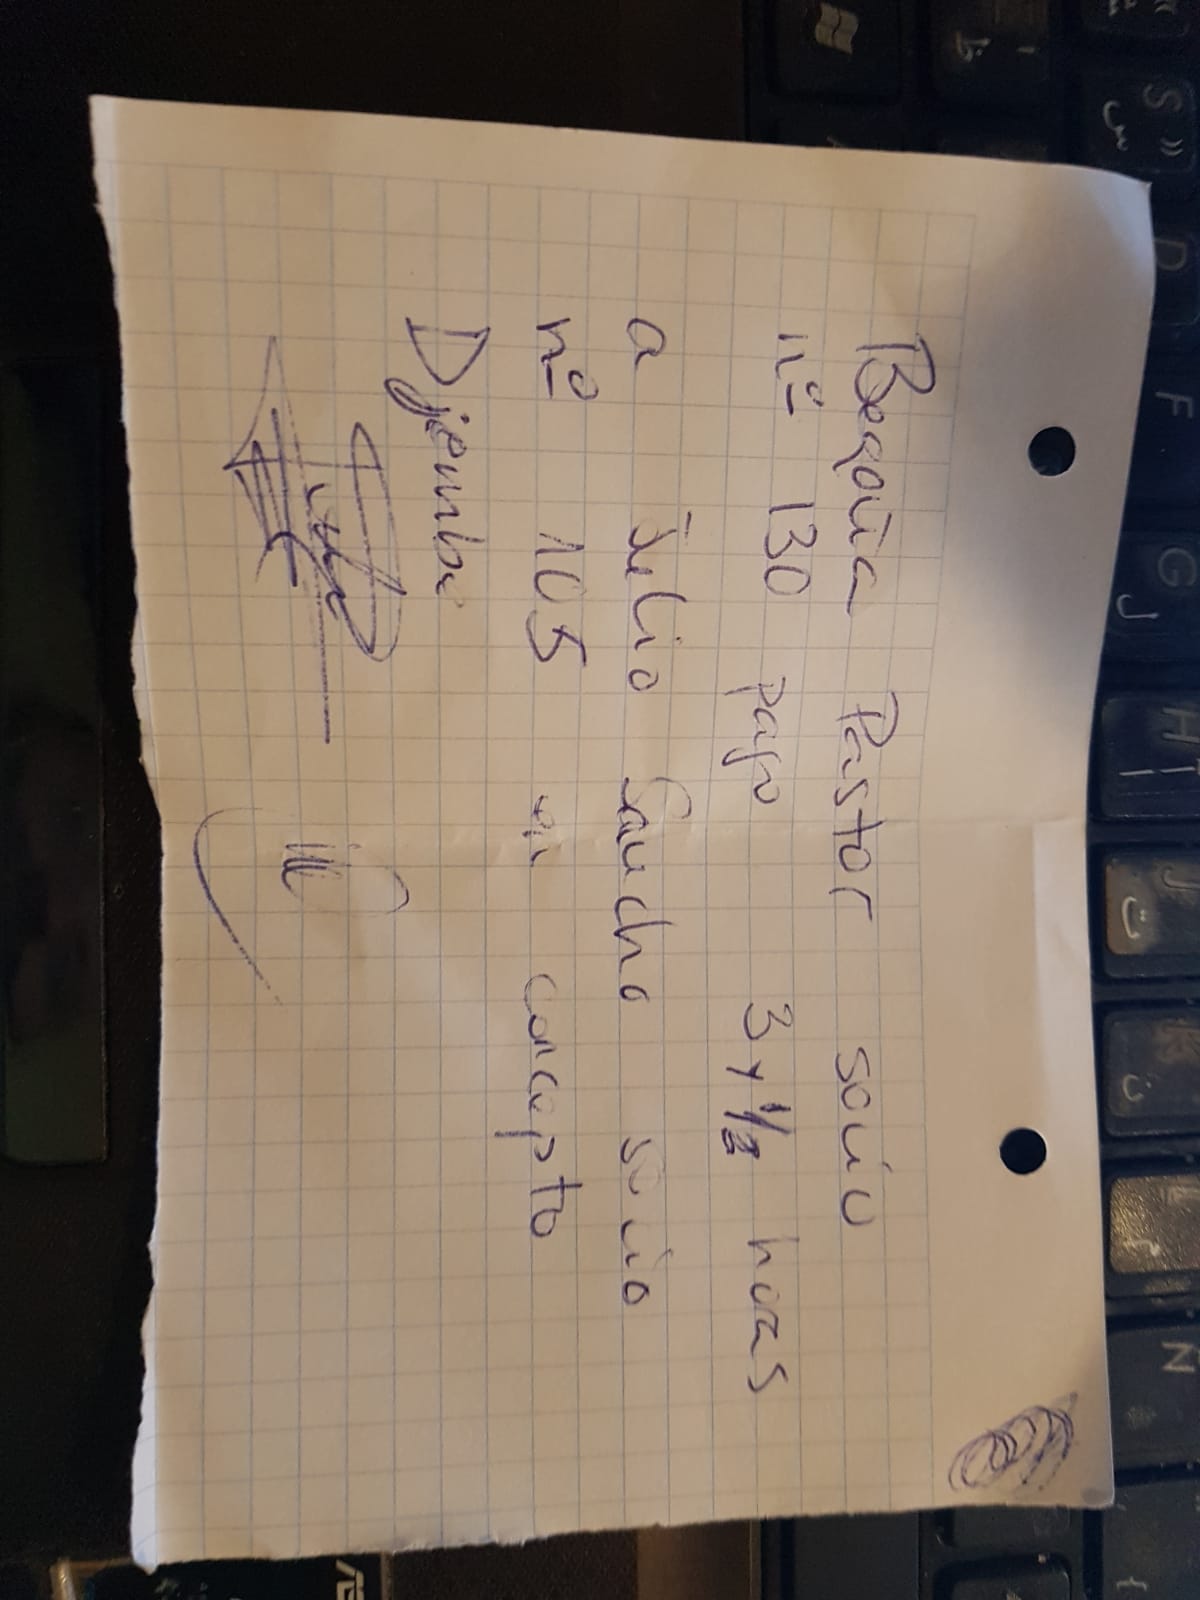 Begoña Pastor socio
nº 130 pago 3 y 1/2 horas
a Julio Sancho socio
nº 105 en concepto
Djembe